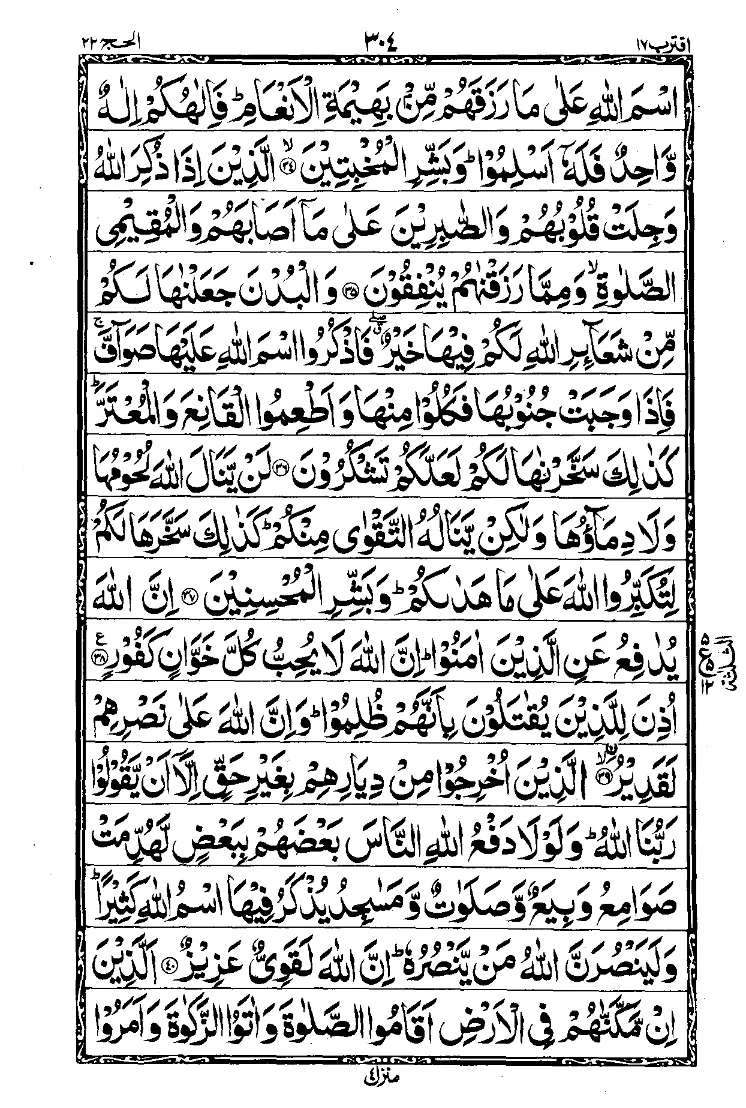 اقترب ١٧
٣٠٤
الحج ٢٢
اسْمَ اللّٰهِ عَلٰى مَا رَزَقَهُمْ مِّنْۢ بَهِيْمَةِ الْاَنْعَامِ ؕ فَاِلٰهُكُمْ اِلٰهٌ
وَّاحِدٌ فَلَهٗۤ اَسْلِمُوْا ؕ وَبَشِّرِ الْمُخْبِتِيْنَ ۙ﴿۳۴﴾ الَّذِيْنَ اِذَا ذُكِرَ اللّٰهُ
وَجِلَتْ قُلُوْبُهُمْ وَالصّٰبِرِيْنَ عَلٰى مَاۤ اَصَابَهُمْ وَالْمُقِيْمِى
الصَّلٰوةِ ۙ وَمِمَّا رَزَقْنٰهُمْ يُنْفِقُوْنَ ﴿۳۵﴾ وَالْبُدْنَ جَعَلْنٰهَا لَكُمْ
مِّنْ شَعَآئِرِ اللّٰهِ لَكُمْ فِيْهَا خَيْرٌ ۖ فَاذْكُرُوا اسْمَ اللّٰهِ عَلَيْهَا صَوَآفَّ ۚ
فَاِذَا وَجَبَتْ جُنُوْبُهَا فَكُلُوْا مِنْهَا وَاَطْعِمُوا الْقَانِعَ وَالْمُعْتَرَّ ؕ
كَذٰلِكَ سَخَّرْنٰهَا لَكُمْ لَعَلَّكُمْ تَشْكُرُوْنَ ﴿۳۶﴾ لَنْ يَّنَالَ اللّٰهَ لُحُوْمُهَا
وَلَا دِمَآؤُهَا وَلٰكِنْ يَّنَالُهُ التَّقْوٰى مِنْكُمْ ؕ كَذٰلِكَ سَخَّرَهَا لَكُمْ
لِتُكَبِّرُوا اللّٰهَ عَلٰى مَا هَدٰىكُمْ ؕ وَبَشِّرِ الْمُحْسِنِيْنَ ﴿۳۷﴾ اِنَّ اللّٰهَ
يُدٰفِعُ عَنِ الَّذِيْنَ اٰمَنُوْا ؕ اِنَّ اللّٰهَ لَا يُحِبُّ كُلَّ خَوَّانٍ كَفُوْرٍ ﴿۳۸﴾ ع
اُذِنَ لِلَّذِيْنَ يُقٰتَلُوْنَ بِاَنَّهُمْ ظُلِمُوْا ؕ وَاِنَّ اللّٰهَ عَلٰى نَصْرِهِمْ
لَقَدِيْرُ ۙ﴿۳۹﴾ الَّذِيْنَ اُخْرِجُوْا مِنْ دِيَارِهِمْ بِغَيْرِ حَقٍّ اِلَّاۤ اَنْ يَّقُوْلُوْا
رَبُّنَا اللّٰهُ ؕ وَلَوْلَا دَفْعُ اللّٰهِ النَّاسَ بَعْضَهُمْ بِبَعْضٍ لَّهُدِّمَتْ
صَوَامِعُ وَبِيَعٌ وَّصَلَوٰتٌ وَّمَسٰجِدُ يُذْكَرُ فِيْهَا اسْمُ اللّٰهِ كَثِيْرًا ؕ
وَلَيَنْصُرَنَّ اللّٰهُ مَنْ يَّنْصُرُهٗ ؕ اِنَّ اللّٰهَ لَقَوِىٌّ عَزِيْزٌ ﴿۴۰﴾ اَلَّذِيْنَ
اِنْ مَّكَّنّٰهُمْ فِى الْاَرْضِ اَقَامُوا الصَّلٰوةَ وَاٰتَوُا الزَّكٰوةَ وَاَمَرُوْا
الثلثة
ع
٥
١٢
منزل ٤